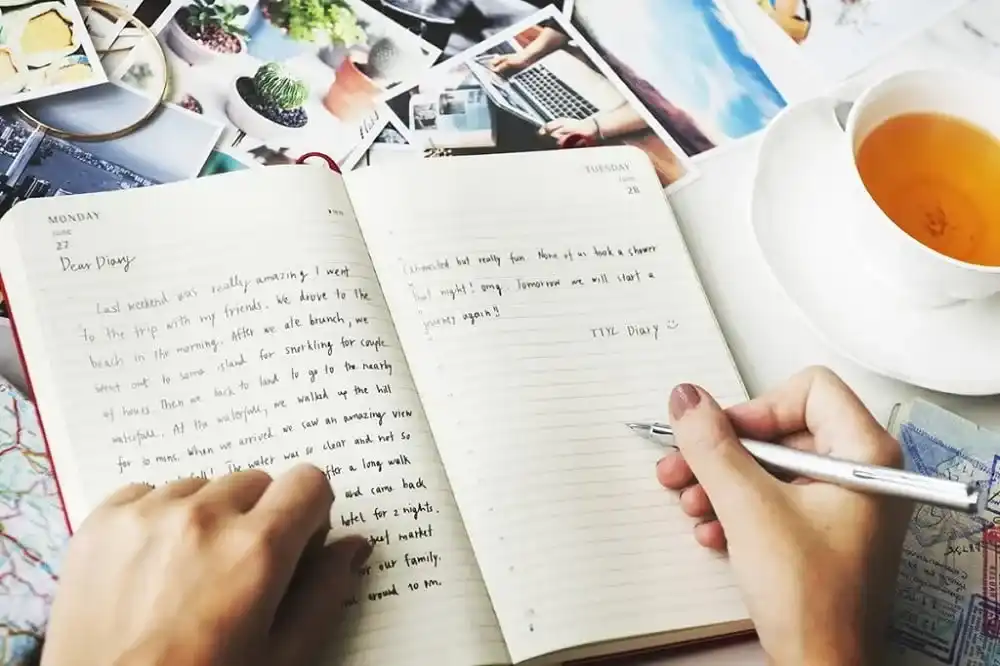 MONDAY
June
27
Dear Diary
Last weekend was really amazing I went
to the trip with my friends. We drove to the
beach in the morning. After we ate brunch, we
went out to some island for snorkling for couple
of hours. Then we back to land to go to the nearby
waterfall. At the waterfall, we walked up the hill
for 10 mins. When we arrived we saw an amazing view
The water was so clear and not so
after a long walk
and came back
hotel for 2 nights.
market
for our family.
around 10 pm.
TUESDAY
June
28
Exhausted but really fun. None of us took a shower
that night! omg. Tomorrow we will start a
journey again!!
TTYL Diary